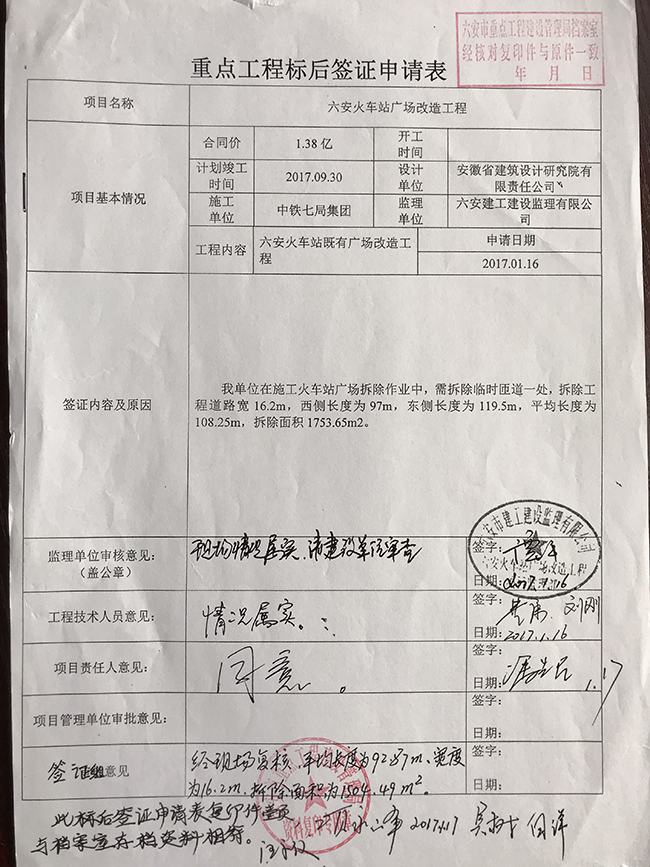 六安市重点工程建设管理局档案室
经核对复印件与原件一致
年 月 日
重点工程标后签证申请表
项目名称 六安火车站广场改造工程
项目基本情况
合同价 1.38 亿 开工时间
计划竣工时间 2017.09.30 设计单位 安徽省建筑设计研究院有限责任公司
施工单位 中铁七局集团 监理单位 六安建工建设监理有限公司
工程内容 六安火车站既有广场改造工程 申请日期
2017.01.16
签证内容及原因
我单位在施工火车站广场拆除作业中，需拆除临时匝道一处，拆除工
程道路宽 16.2m，西侧长度为 97m，东侧长度为 119.5m，平均长度为
108.25m，拆除面积 1753.65m2。
监理单位审核意见：
（盖公章）
现场情况属实，请建设单位审查
签字：
日期：
六安市建工建设监理有限公司
六安火车站广场改造工程
工程技术人员意见：
情况属实。
签字： 刘刚
日期：2017.1.16
项目责任人意见：
同意。
签字：
日期： 1.17
项目管理单位审批意见：
签字：
日期：
签证组意见
经现场复核，平均长度为92.87m，宽度
为16.2m，拆除面积为1504.49m²。
资料复印专用章
2017.1.17
此标后签证申请表复印件壹页
与档案室存档资料相符。